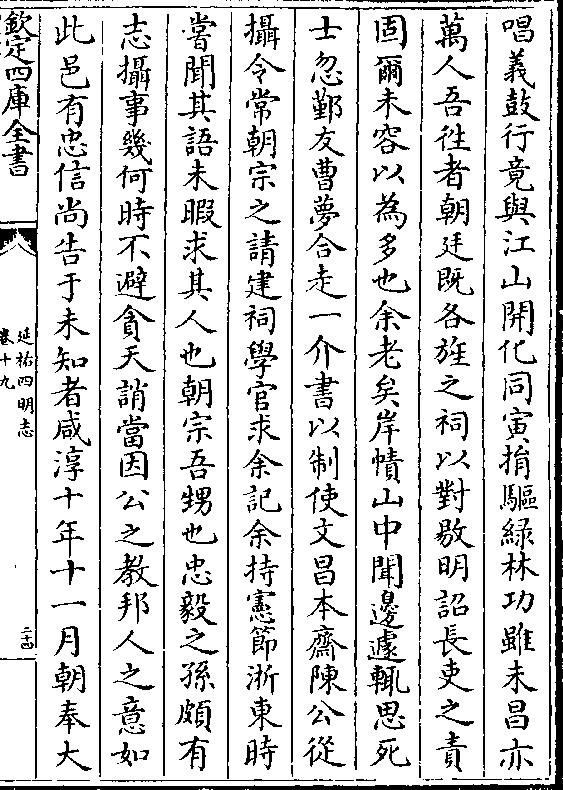 唱義鼓行竟與江山開化同寅捐驅緑林功雖未昌亦
萬人吾徃者朝廷既各旌之祠以對敭明詔長吏之責
固爾未容以為多也余老矣岸幘山中聞邊遽輒思死
士忽鄞友曹夢合走一介書以制使文昌本齋陳公從
攝令常朝宗之請建祠學官求余記余持憲節浙東時
嘗聞其語未暇求其人也朝宗吾甥也忠毅之孫頗有
志攝事幾何時不避貪天誚當因公之教邦人之意如
此邑有忠信尚告于未知者咸淳十年十一月朝奉大
欽定四庫全書
延祐四明志
卷十九
二十四